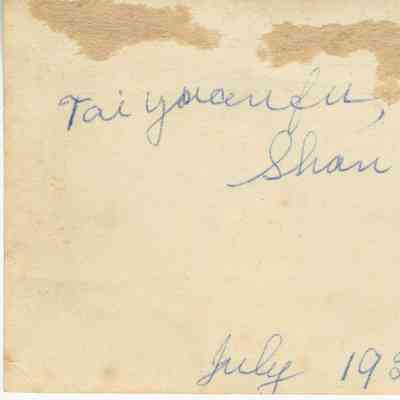 Taiyuanfu,
Shan
July 193